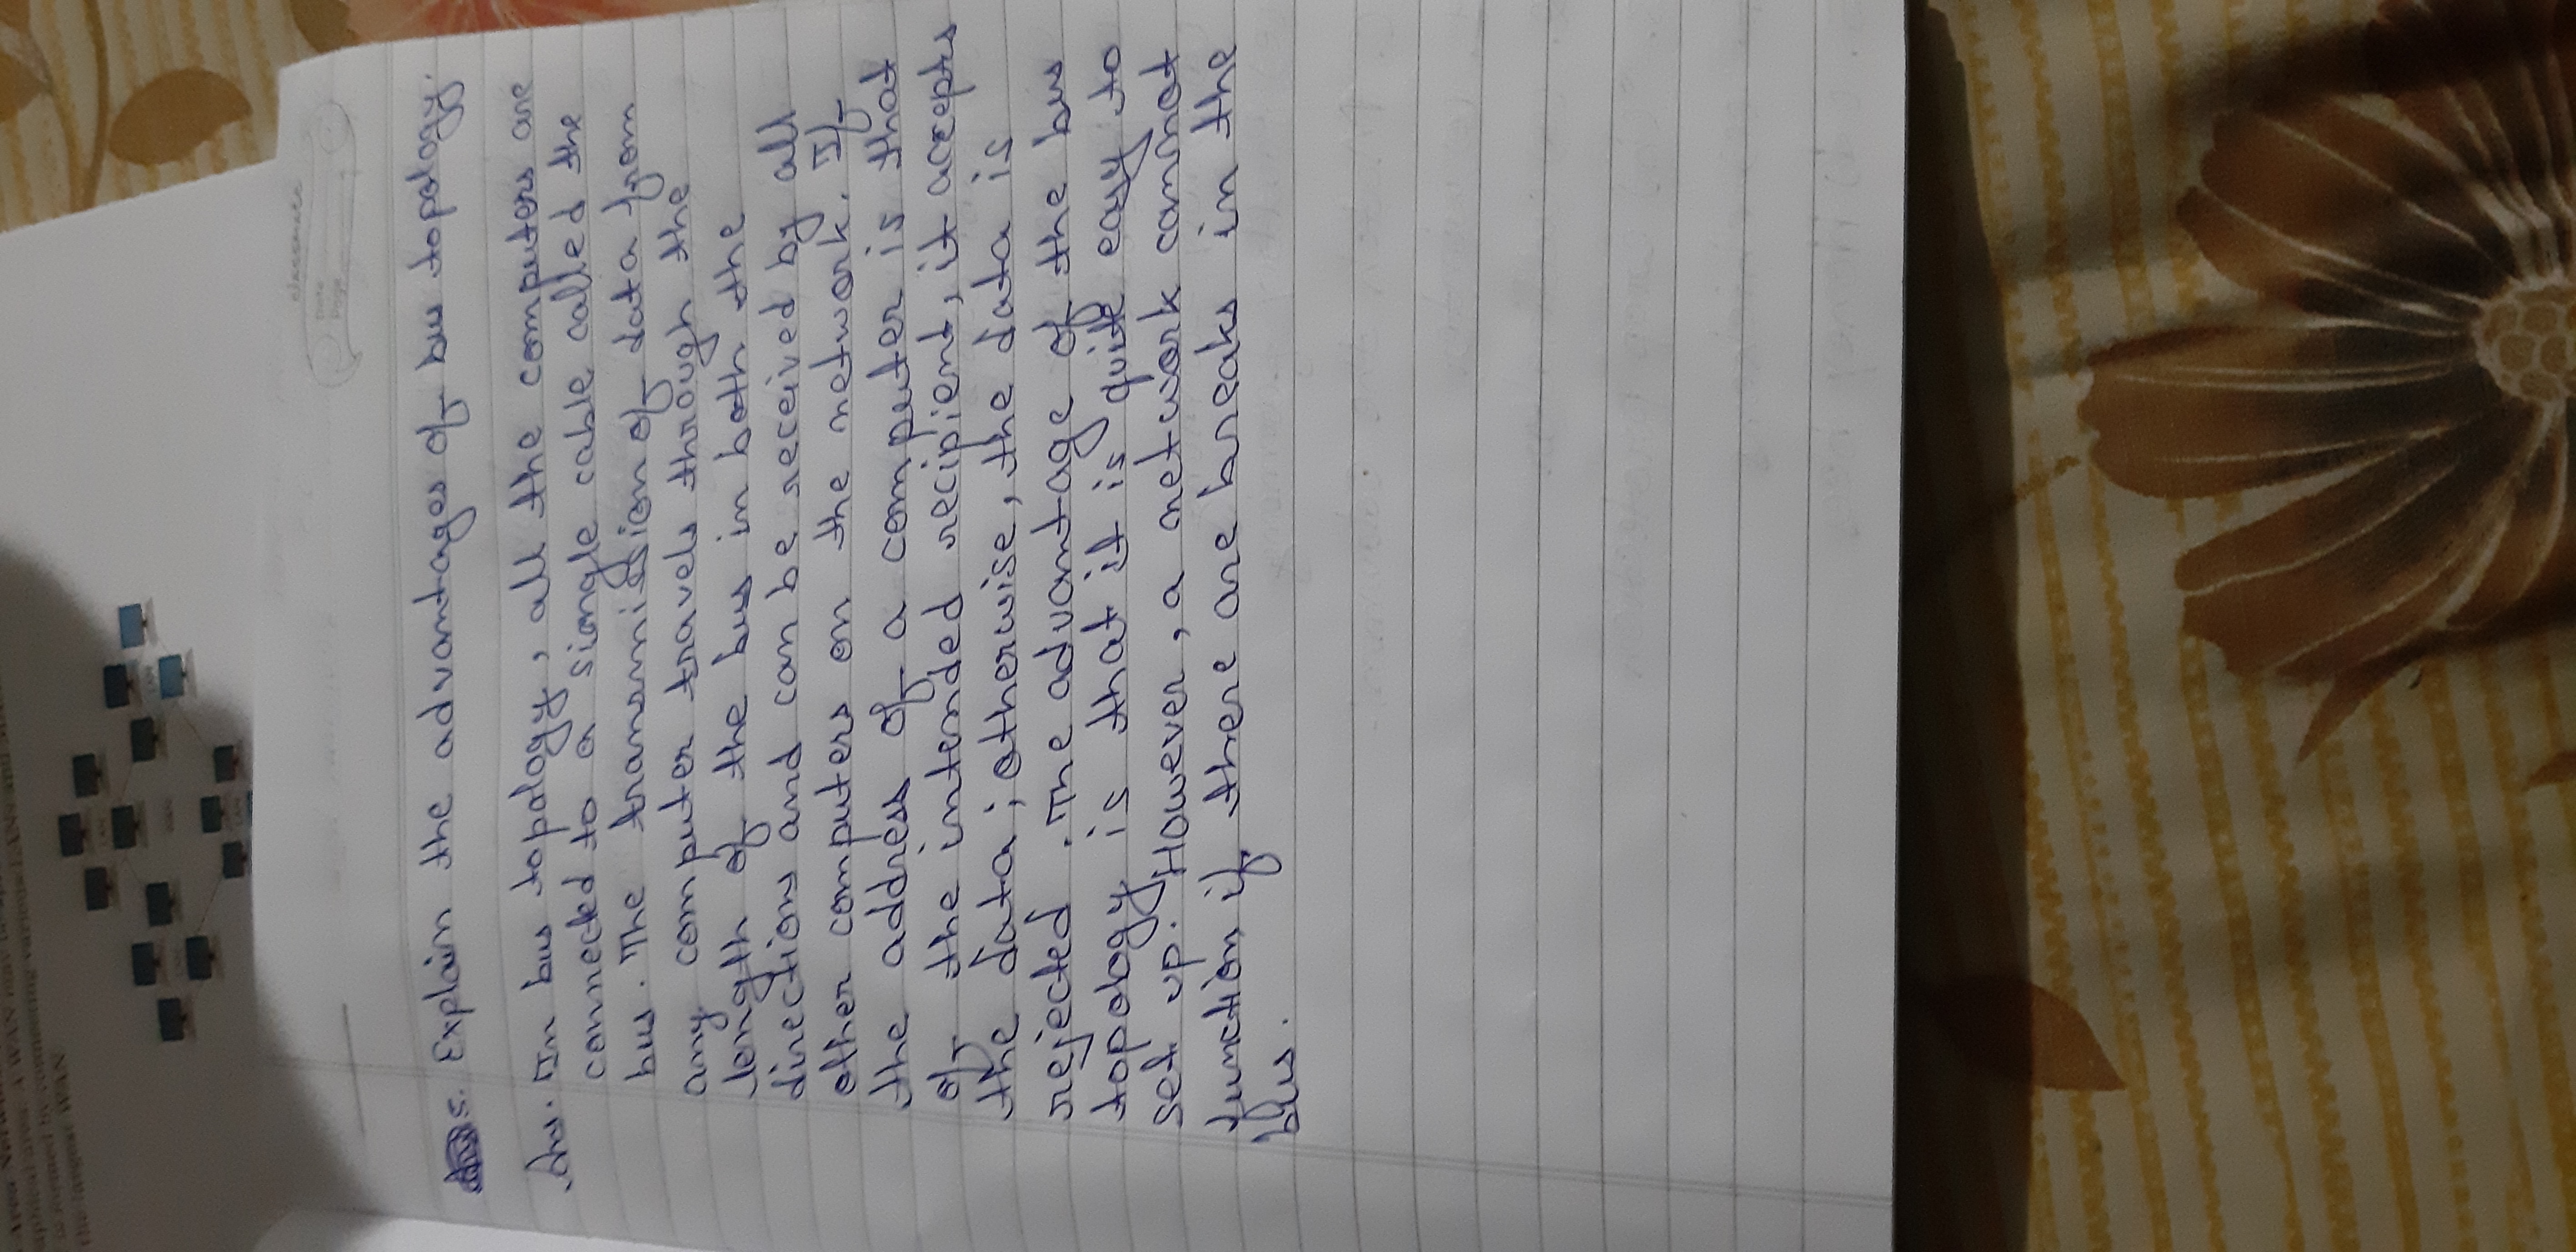 Area Netw
aphical area. A WAN may be
is formed by connecting various LANs and
the largest WAN
LAN
LAN
LAN
WAN
LAN
classmate
Date
Page
5. Explain the advantages of bus topology.
Ans. In bus topology, all the computers are
connected to a siongle cable called the
bus. The transmission of data from
any computer travels through the
length of the bus in both the
directions and can be received by all
other computers on the network. If
the address of a computer is that
of the intended recipient, it accepts
the data; otherwise, the data is
rejected. The advantage of the bus
topology is that it is quite easy to
set up. However, a network cannot
function if there are breaks in the
bus.